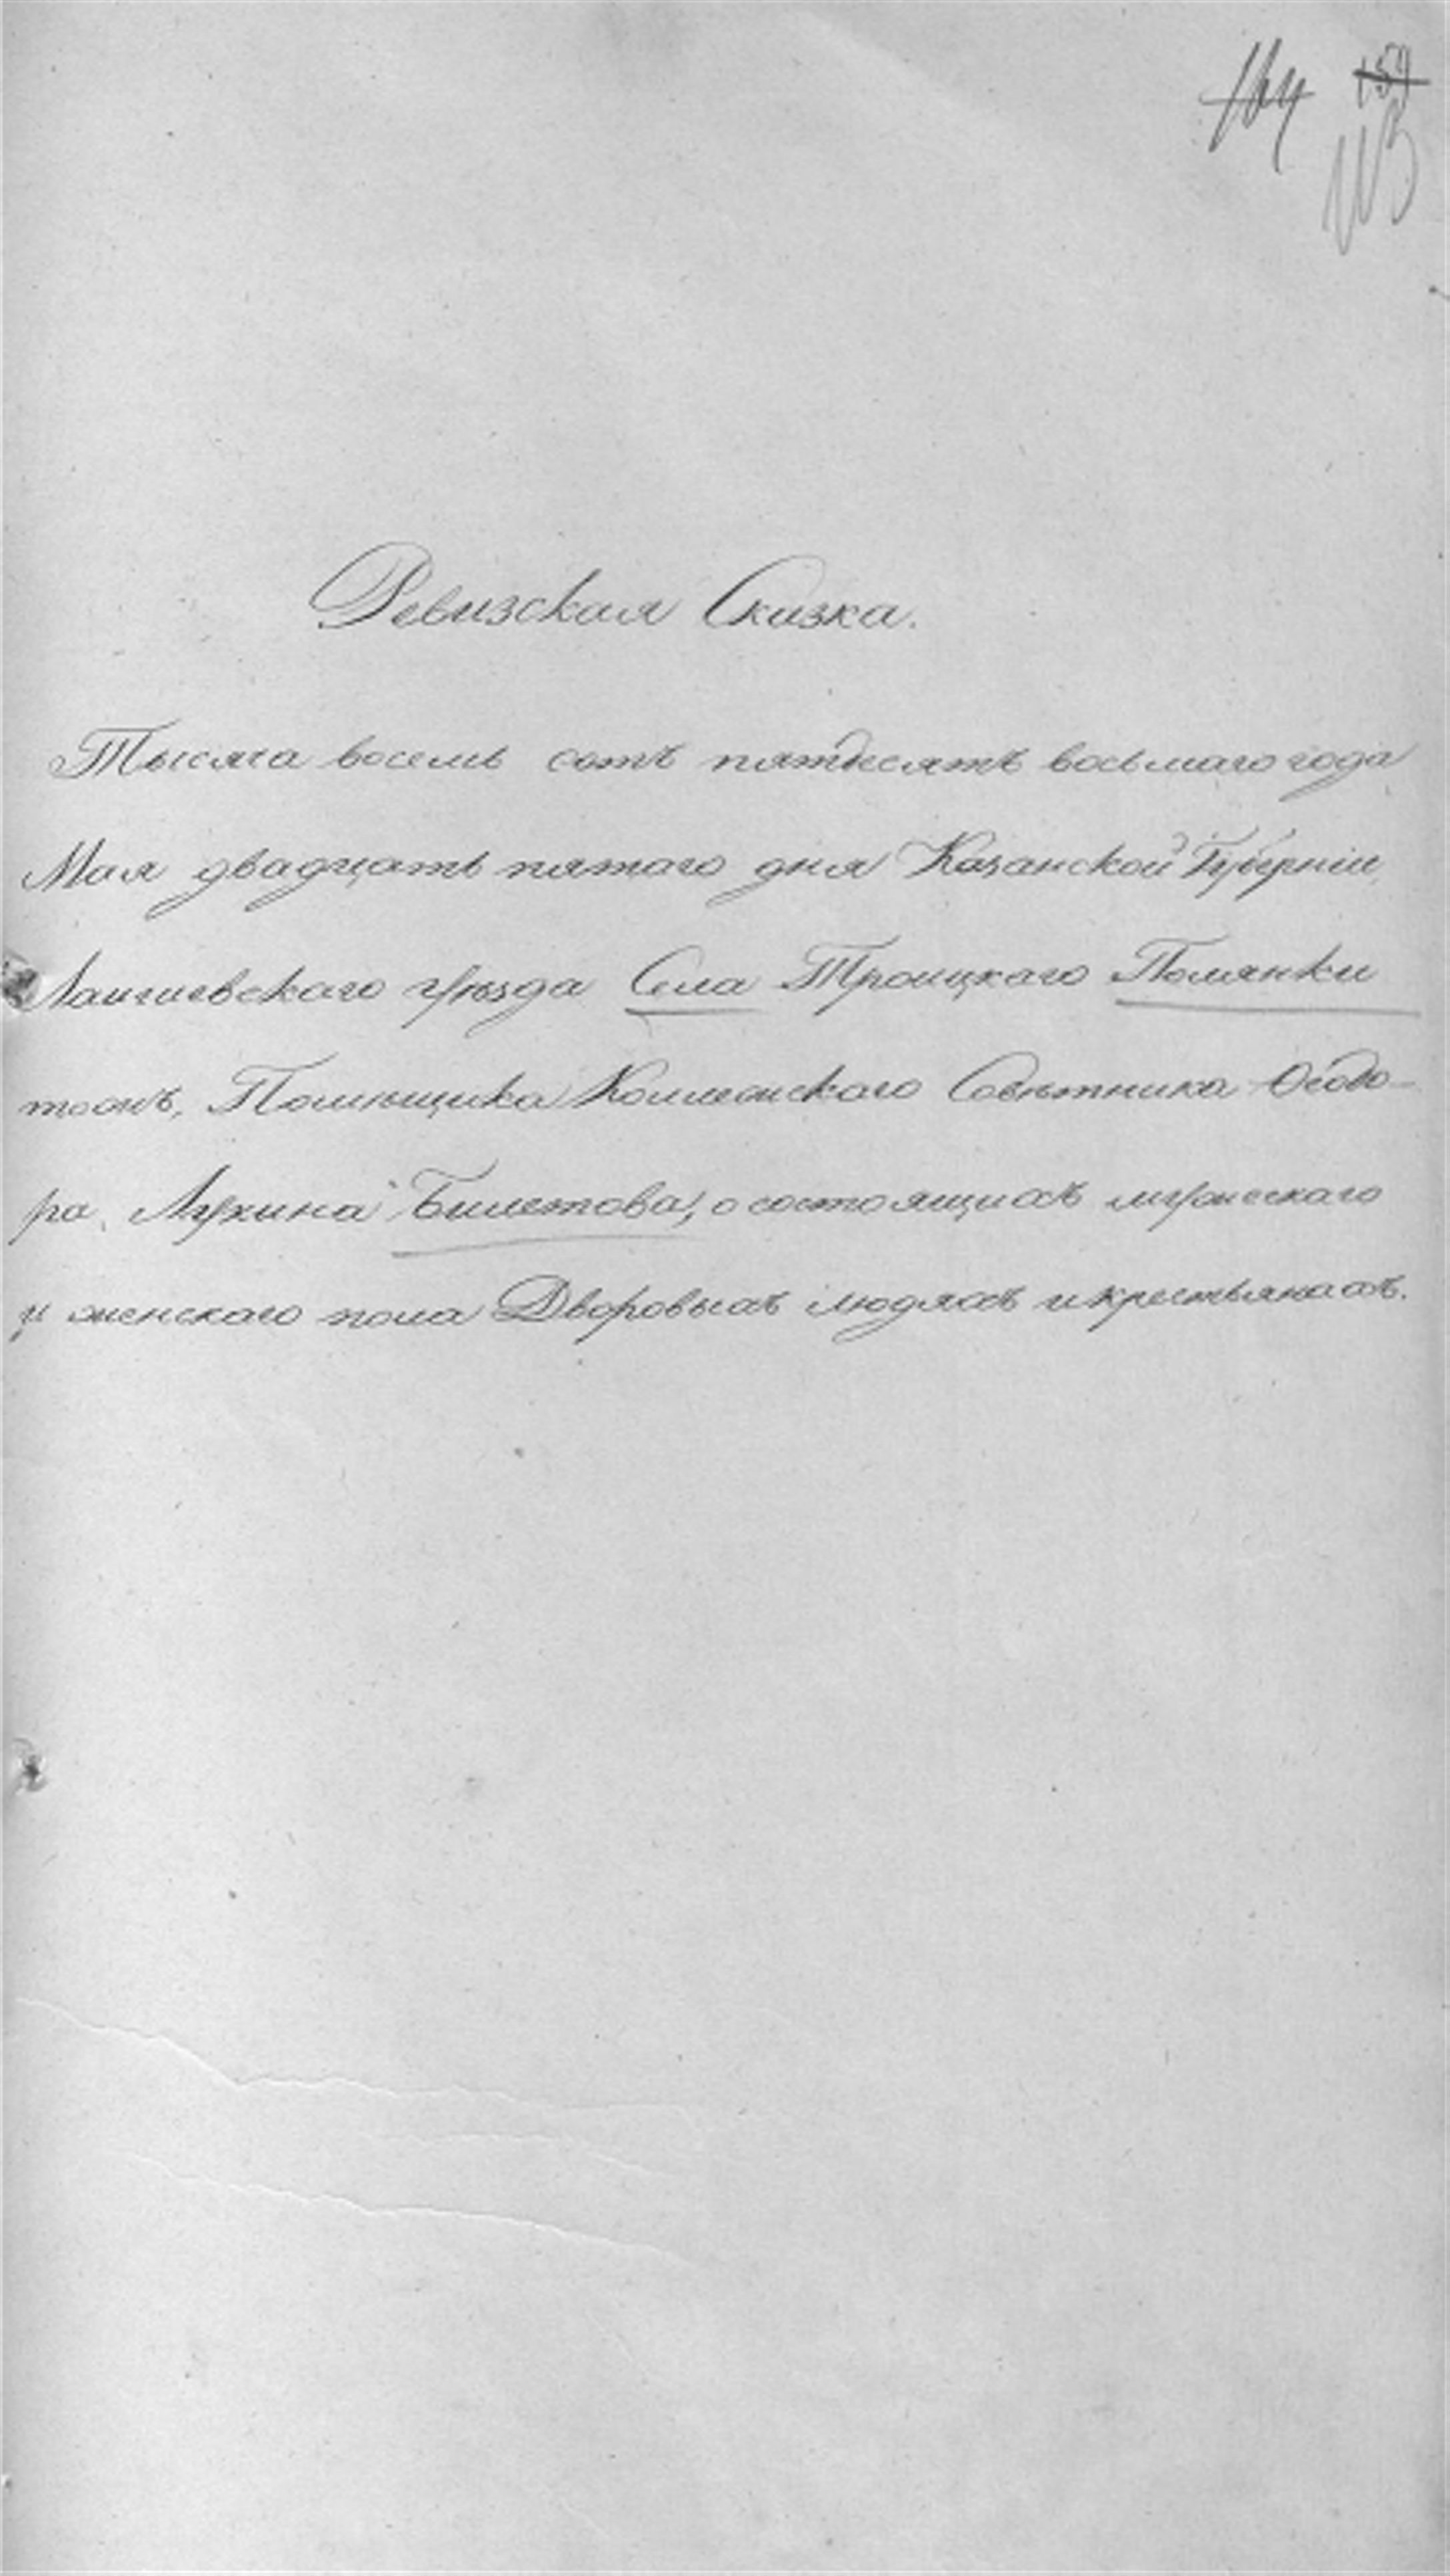 164 159
113
Ревизская Сказка.
Тысяча восемь сотъ пятдесятъ восьмаго года
Мая двадцать пятаго дня Казанской Губерніи,
Лаишевскаго уѣзда Села Троицкаго
тожъ, Помѣщика Коллежскаго Совѣтника Ѳеодо-
ра Лукина Билетова, о состоящихъ мужескаго
и женскаго пола Дворовыхъ людяхъ и крестьянахъ.